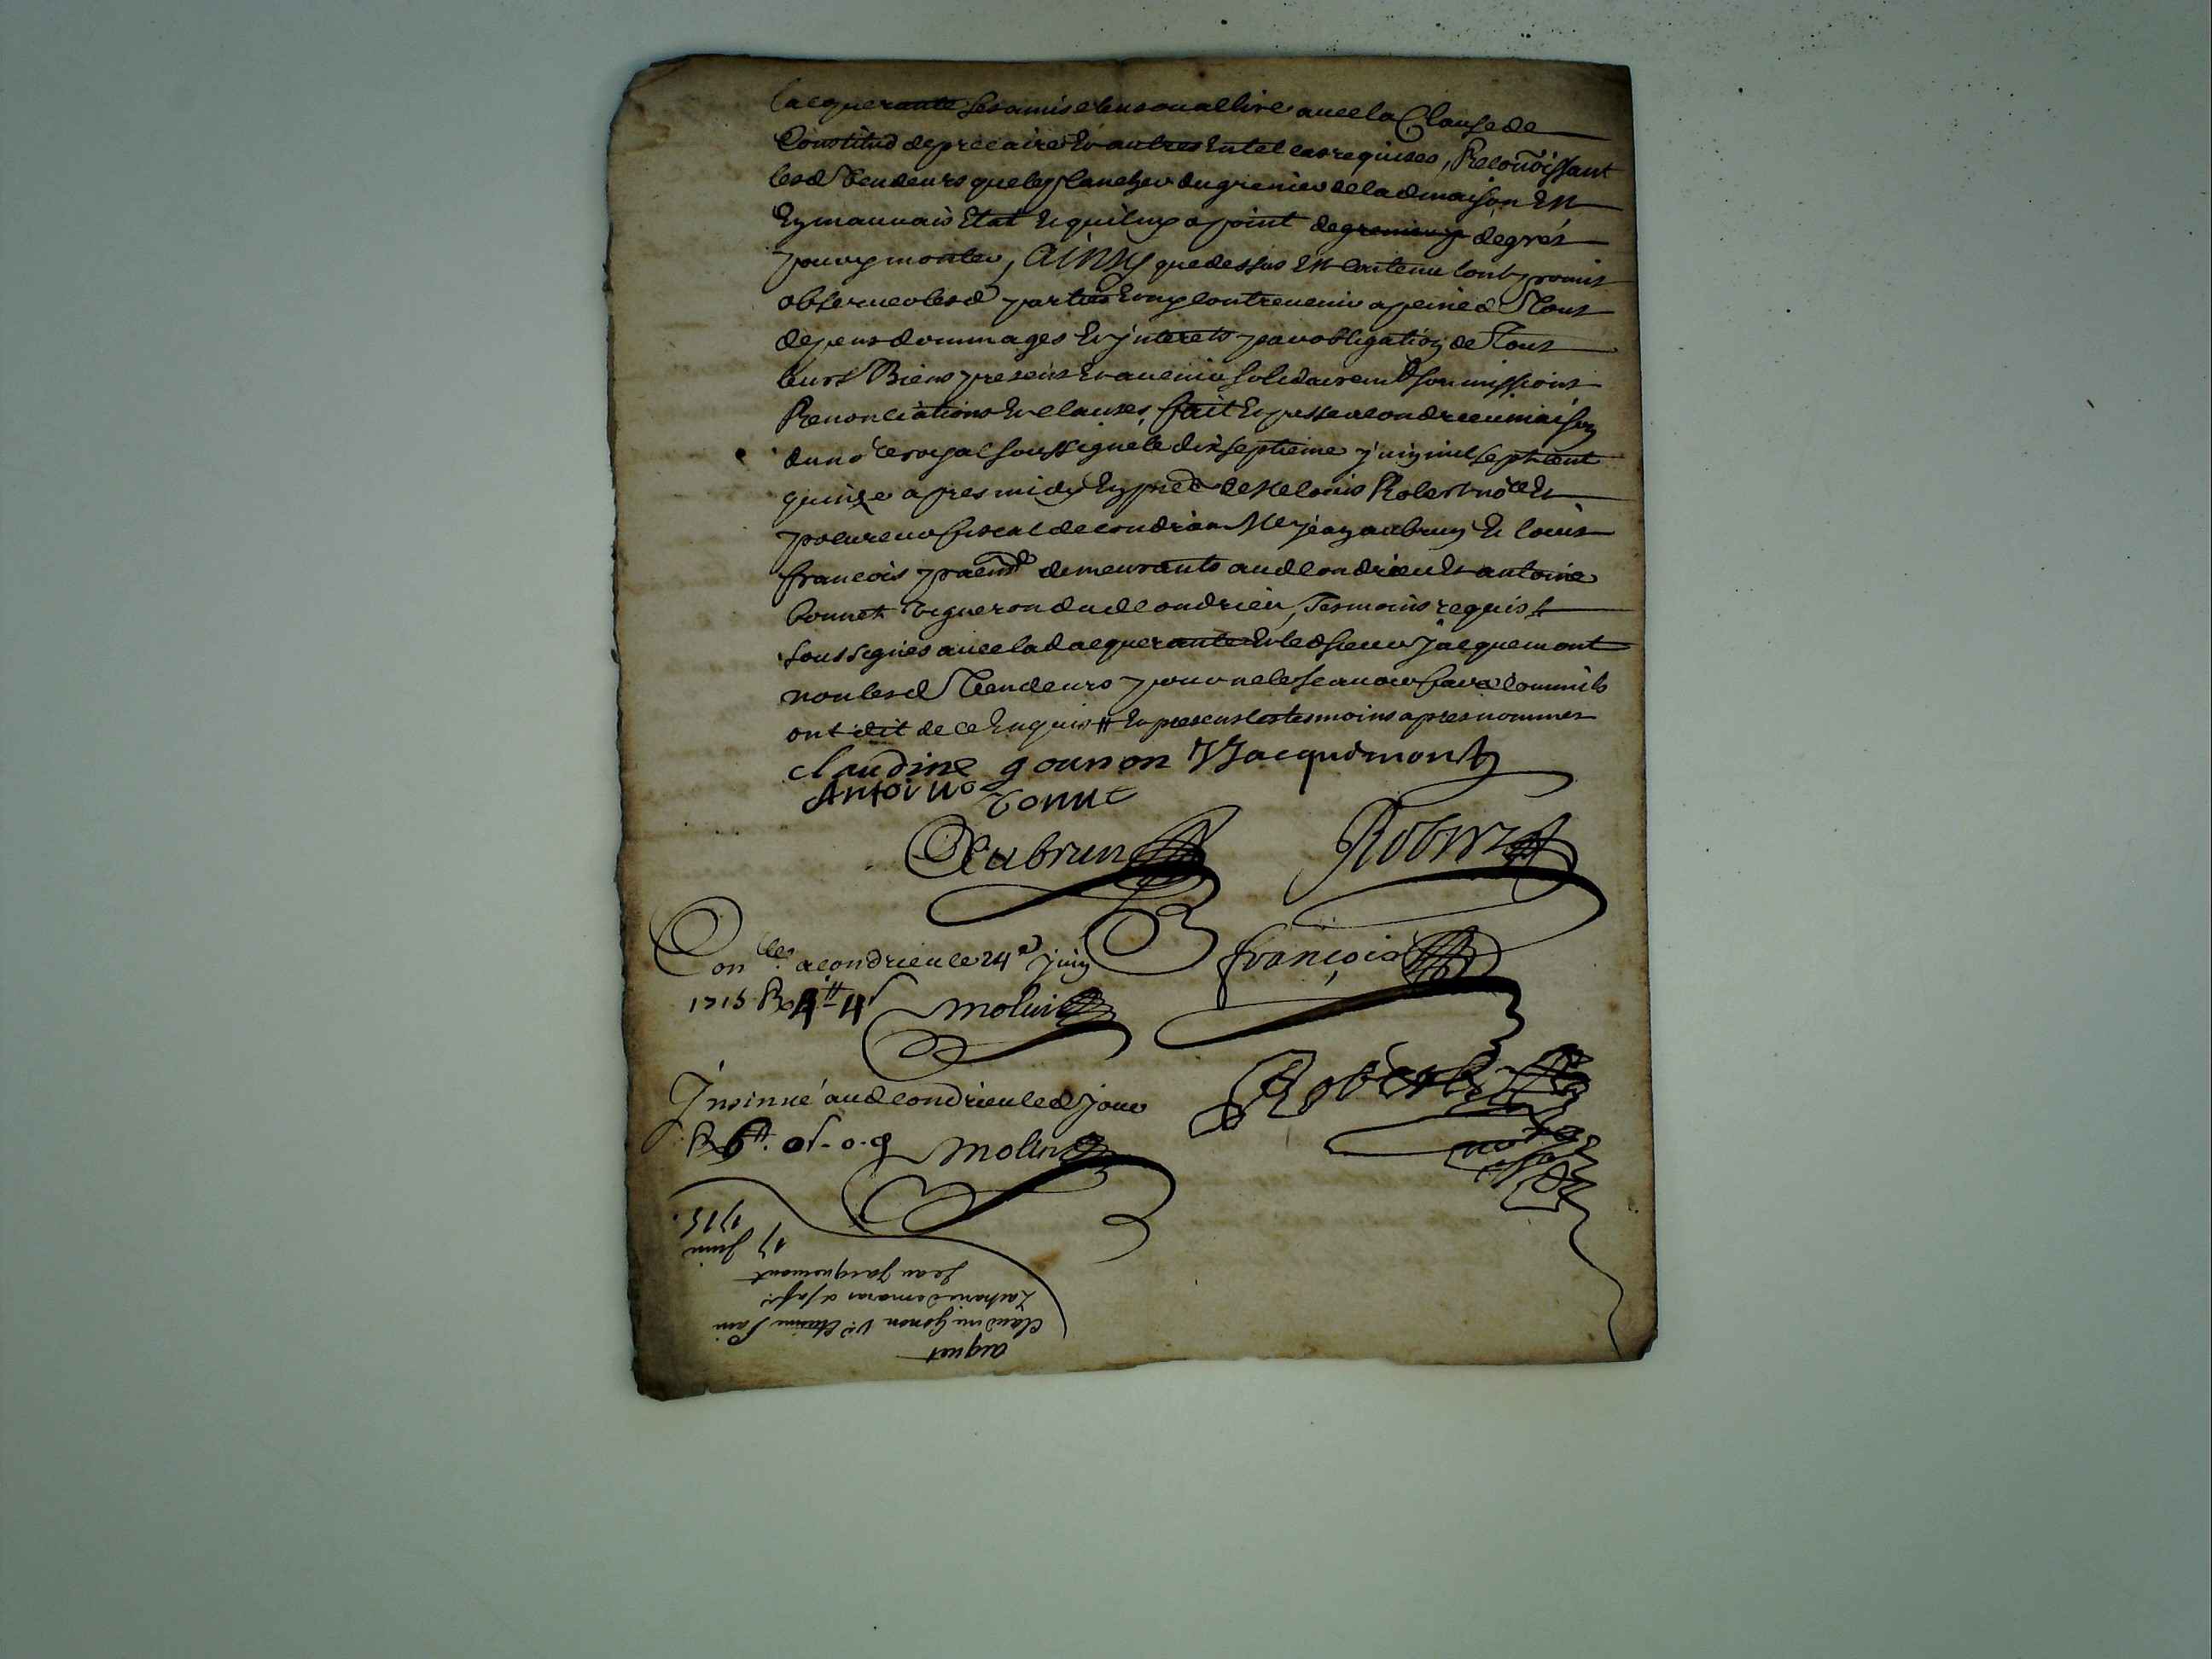 lacquerante ses amis eleus ou a elire avec la Clause de
Constitud de precaire Et autres En tel cas requises, Reconoissant
lesd Vendeurs que le plancher du grenier de lad maison Est
En mauvais Etat Et quil ny a point de degrés
pour y monter, AINSY que dessus Est Contenu lont promis
observer lesd parties Et ny contrevenir a peine de Tous
depens dommages Et interets par obligation de Tous
leurs Biens presens Et avenir solidairemt soumissions
Renonciations Et clauses, fait Et passé a condrieu maison
du nore royal soussigné le dix septieme juin mil sept cent
quinze apres midy En prece de Me louis Robert nore Et
procureur fiscal de condrieu Me jean aubrun Et louis
francois praens demeurants aud condrieu Et antoine
bonnet vigneron dud condrieu, Tesmoins requis
soussignés avec lad acquerante Et led sieur Jacquemont
non lesd Vendeurs pour ne le scavoir faire comm ils
ont dit de ce Enquis # En presens les tesmoins apres nommes
claudine gounon JJacquemont
Antoine bonnet
Aubrun Robert
françois
Conlé a condrieu le 24e juin
1715 R 4# 4s molin
Robert
Insinué aud condrieu led jour
R 6# 0s-0-d molin
acquet
Claudine Gonon Ve
Zacharie
Jean Jacquemont
17 Juin
1715